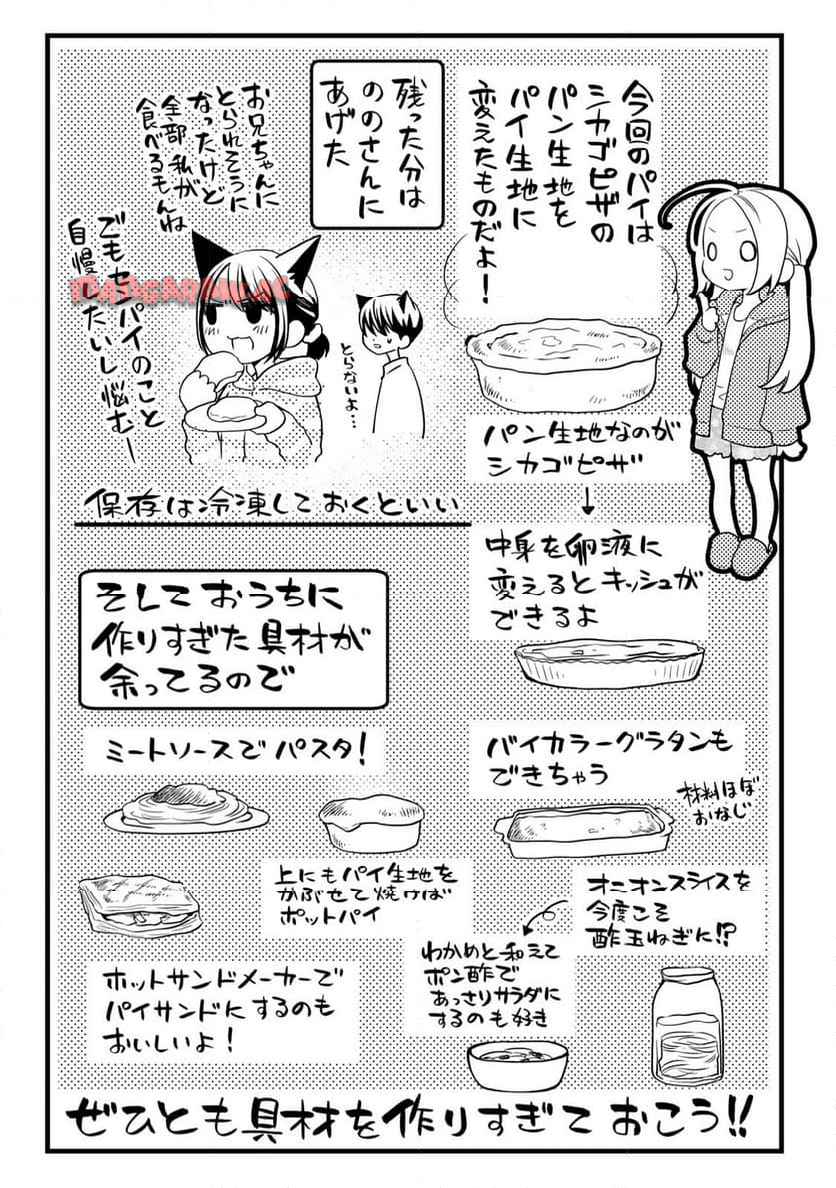 今回のパイは
シカゴピザの
パン生地を
パイ生地に
変えたものだよ！
パン生地なのが
シカゴピザ
↓
中身を卵液に
変えるとキッシュが
できるよ
バイカラーグラタンも
できちゃう
材料ほぼ
おなじ
残った分は
ののさんに
あげた
お兄ちゃんに
とられそうに
なったけど
全部私が
食べるもんね
とらないよ…
パイのこと
自慢したいし悩むー
保存は冷凍しておくといい
そしておうちに
作りすぎた具材が
余ってるので
ミートソースでパスタ！
上にもパイ生地を
かぶせて焼けば
ポットパイ
ホットサンドメーカーで
パイサンドにするのも
おいしいよ！
オニオンスライスを
今度こそ
酢玉ねぎに!?
わかめと和えて
ポン酢で
あっさりサラダに
するのも好き
ぜひとも具材を作りすぎておこう!!